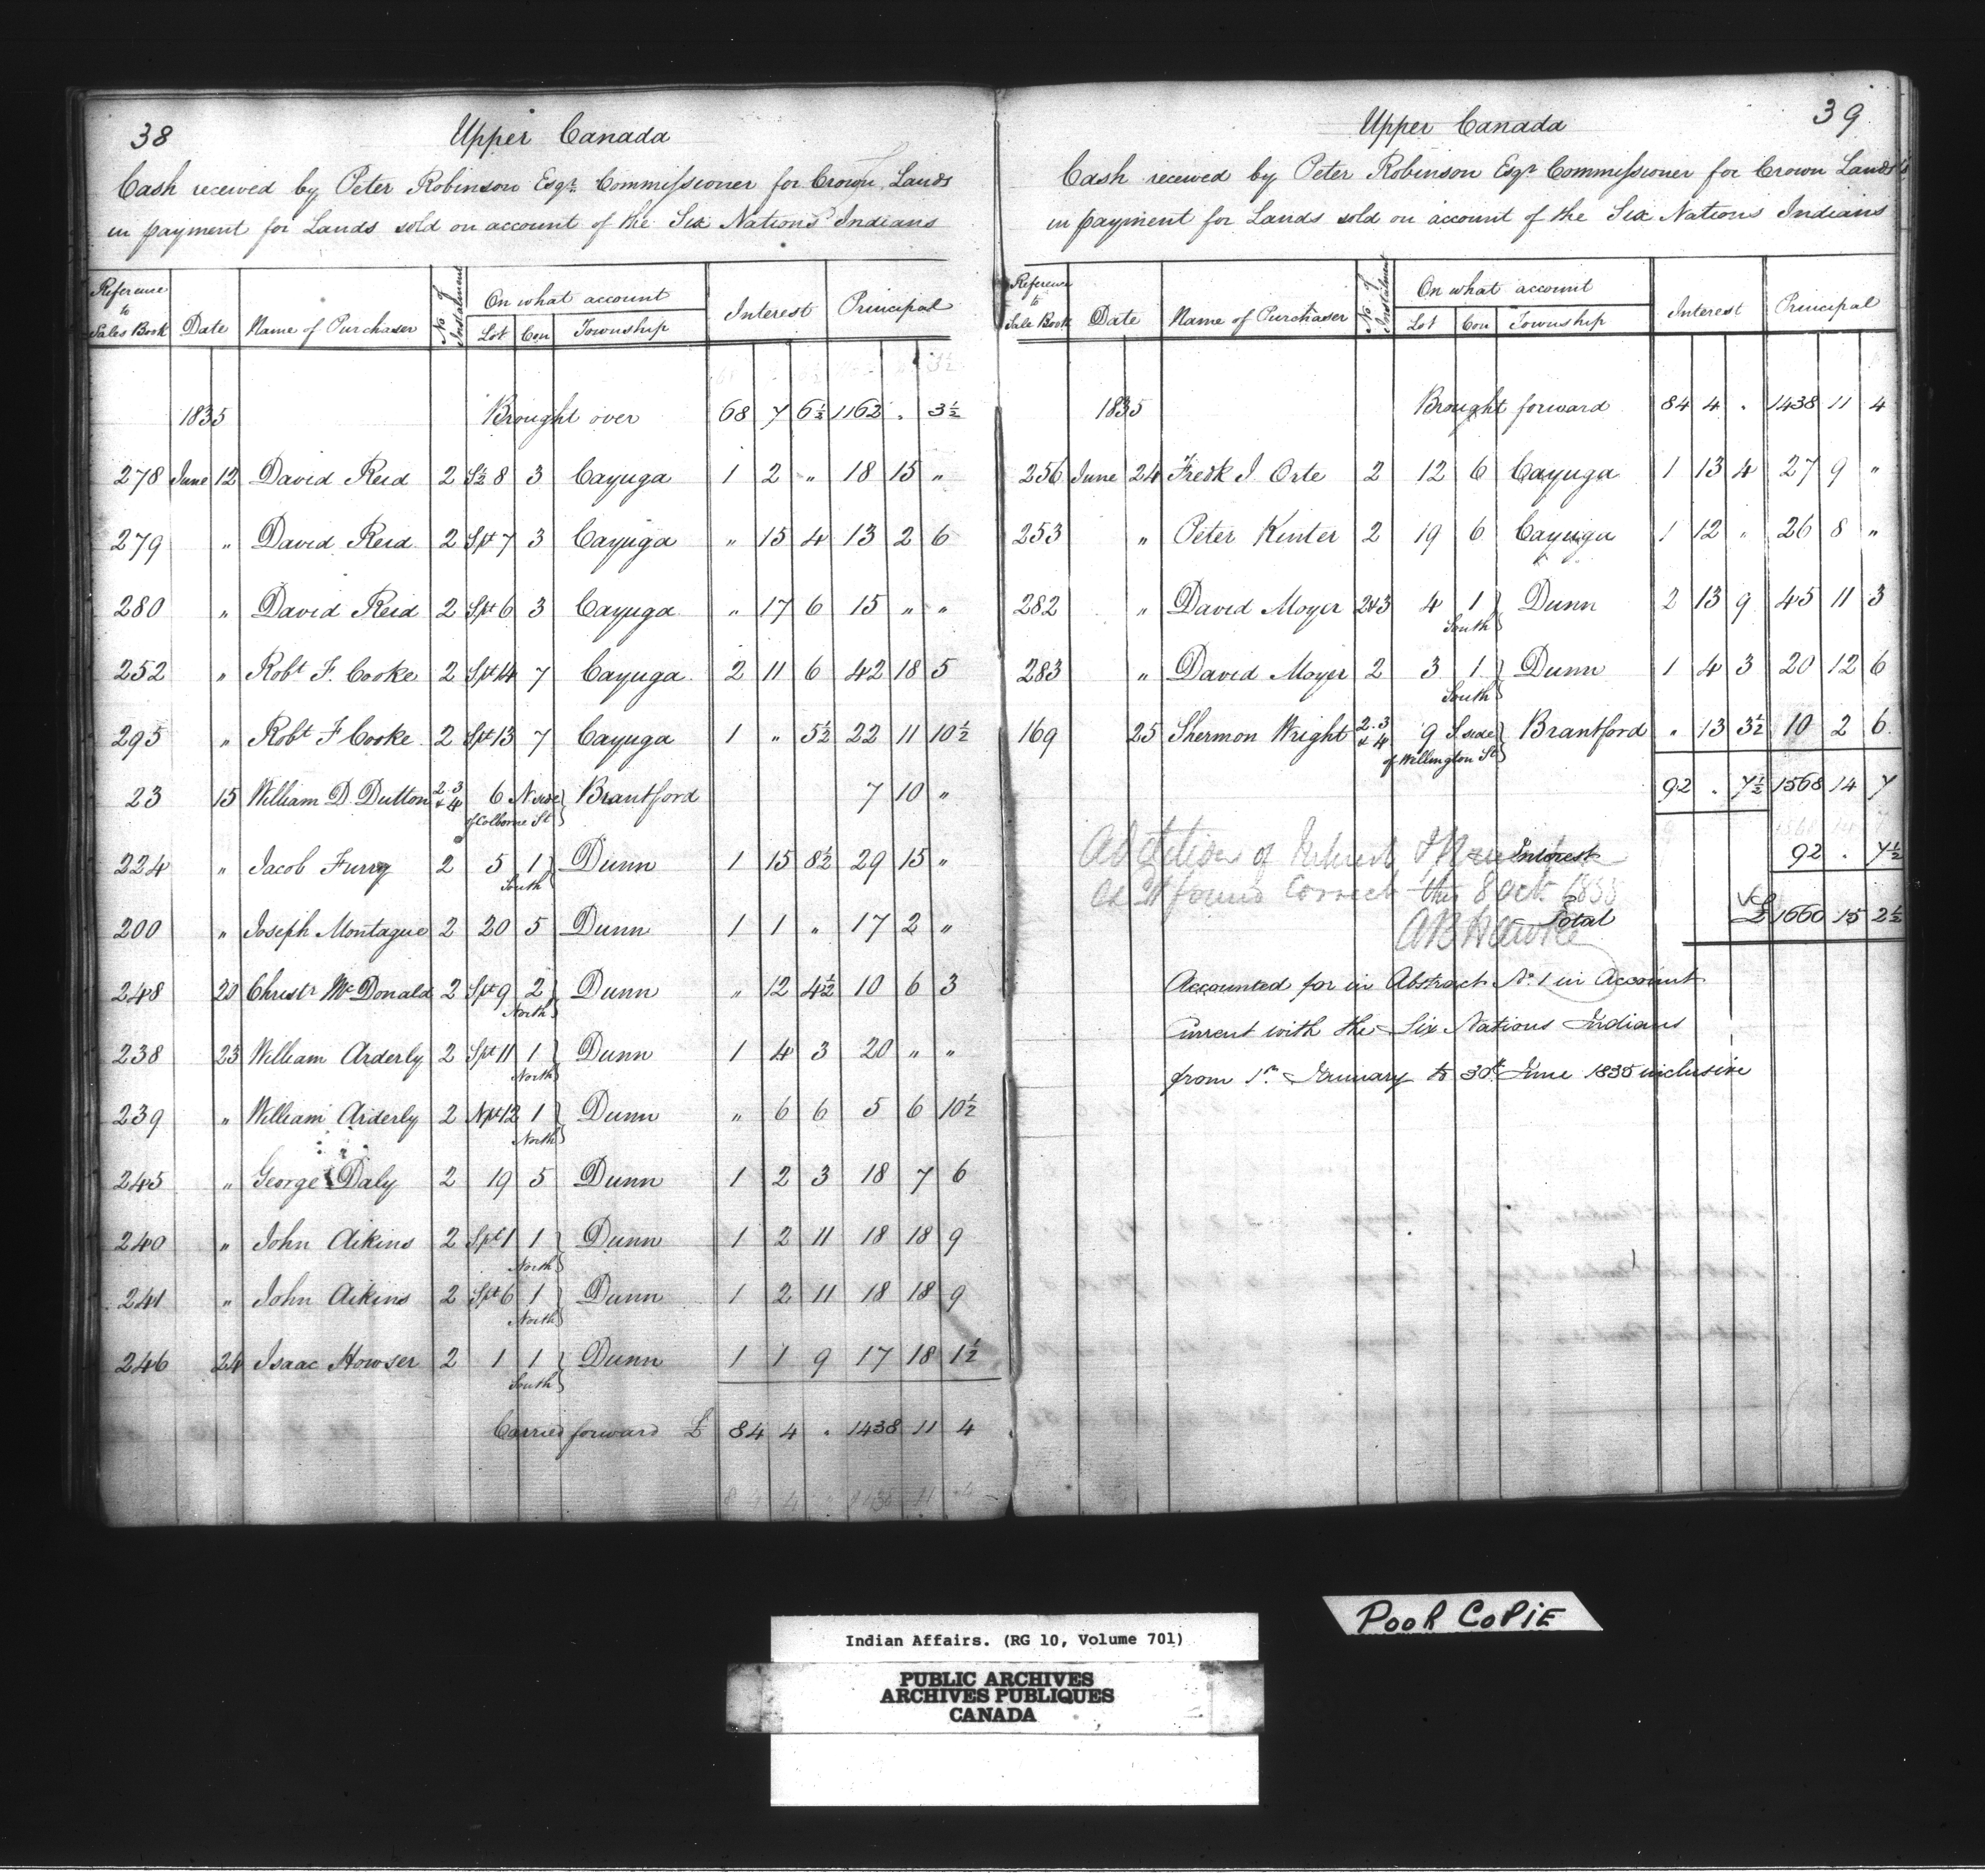 38
Upper Canada
Cash received by Peter Robinson Esqr. Commissioner for Crown Lands
in payment for Lands sold on account of the Six Nations Indians
Reference to Sales Book | Date | Name of Purchaser | No of Instalment | On what account | Interest | Principal
Lot | Con | Township
1835 Brought over 68 7 6½ 1162 . 3½
278 June 12 David Reid 2 S½ 8 3 Cayuga 1 2 " 18 15 "
279 " David Reid 2 Spt 7 3 Cayuga " 15 4 13 2 6
280 " David Reid 2 Spt 6 3 Cayuga " 17 6 15 " "
252 " Robt F. Cooke 2 Spt 14 7 Cayuga 2 11 6 42 18 5
295 " Robt F Cooke 2 Spt 13 7 Cayuga 1 " 5½ 22 11 10½
23 15 William D. Dutton 2.3 & 4 6 N side of Colborne St Brantford 7 10 "
224 " Jacob Furry 2 5 1 South Dunn 1 15 8½ 29 15 "
200 " Joseph Montague 2 20 5 Dunn 1 1 " 17 2 "
248 20 Christr McDonald 2 Spt 9 2 North Dunn " 12 4½ 10 6 3
238 23 William Arderly 2 Spt 11 1 North Dunn 1 4 3 20 " "
239 " William Arderly 2 Npt 12 1 North Dunn " 6 6 5 6 10½
245 " George Daly 2 19 5 Dunn 1 2 3 18 7 6
240 " John Aikins 2 Spt 1 1 North Dunn 1 2 11 18 18 9
241 " John Aikins 2 Spt 6 1 North Dunn 1 2 11 18 18 9
246 24 Isaac Howser 2 1 1 South Dunn 1 1 9 17 18 1½
Carried forward £ 84 4 . 1438 11 4
39
Upper Canada
Cash received by Peter Robinson Esqr Commissioner for Crown Lands
in payment for Lands sold on account of the Six Nations Indians
Reference to Sale Book | Date | Name of Purchaser | No of Instalment | On what account | Interest | Principal
Lot | Con | Township
1835 Brought forward 84 4 . 1438 11 4
256 June 24 Fredk J. Orte 2 12 6 Cayuga 1 13 4 27 9 "
253 " Peter Kinter 2 19 6 Cayuga 1 12 " 26 8 "
282 " David Moyer 2&3 4 1 South Dunn 2 13 9 45 11 3
283 " David Moyer 2 3 1 South Dunn 1 4 3 20 12 6
169 25 Shermon Wright 2.3 & 4 9 S side of Wellington St Brantford " 13 3½ 10 2 6
92 . 7½ 1568 14 7
Interest 92 . 7½
Addition of Interest &
found correct this 8 Oct. 1835
A B Hawke
Total £ 1660 15 2½
Accounted for in Abstract No. 1 in Account
Current with the Six Nations Indians
from 1st January to 30th June 1835 inclusive
POOR COPIE
Indian Affairs. (RG 10, Volume 701)
PUBLIC ARCHIVES
ARCHIVES PUBLIQUES
CANADA